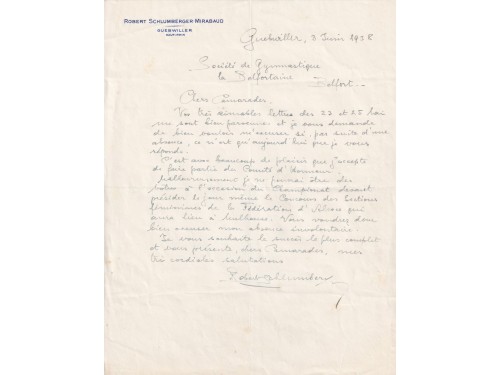 ROBERT SCHLUMBERGER-MIRABAUD
GUEBWILLER
HAUT-RHIN
Guebwiller, 3 Juin 1938
Société de Gymnastique
la Belfortaine
Belfort.
Chers Camarades,
Vos très aimables lettres des 22 et 25 Mai
me sont bien parvenues et je vous demande
de bien vouloir m'excuser si, par suite d'une
absence, ce n'est qu'aujourd'hui que je vous
réponds.
C'est avec beaucoup de plaisir que j'accepte
de faire partie du Comité d'Honneur.
Malheureusement je ne pourrai être des
vôtres à l'occasion du Championnat devant
présider le jour même le Concours des Sections
féminines de la Fédération d'Alsace qui
aura lieu à Mulhouse. Vous voudrez donc
bien excuser mon absence involontaire.
Je vous souhaite le succès le plus complet
et vous présente, chers Camarades, mes
très cordiales salutations